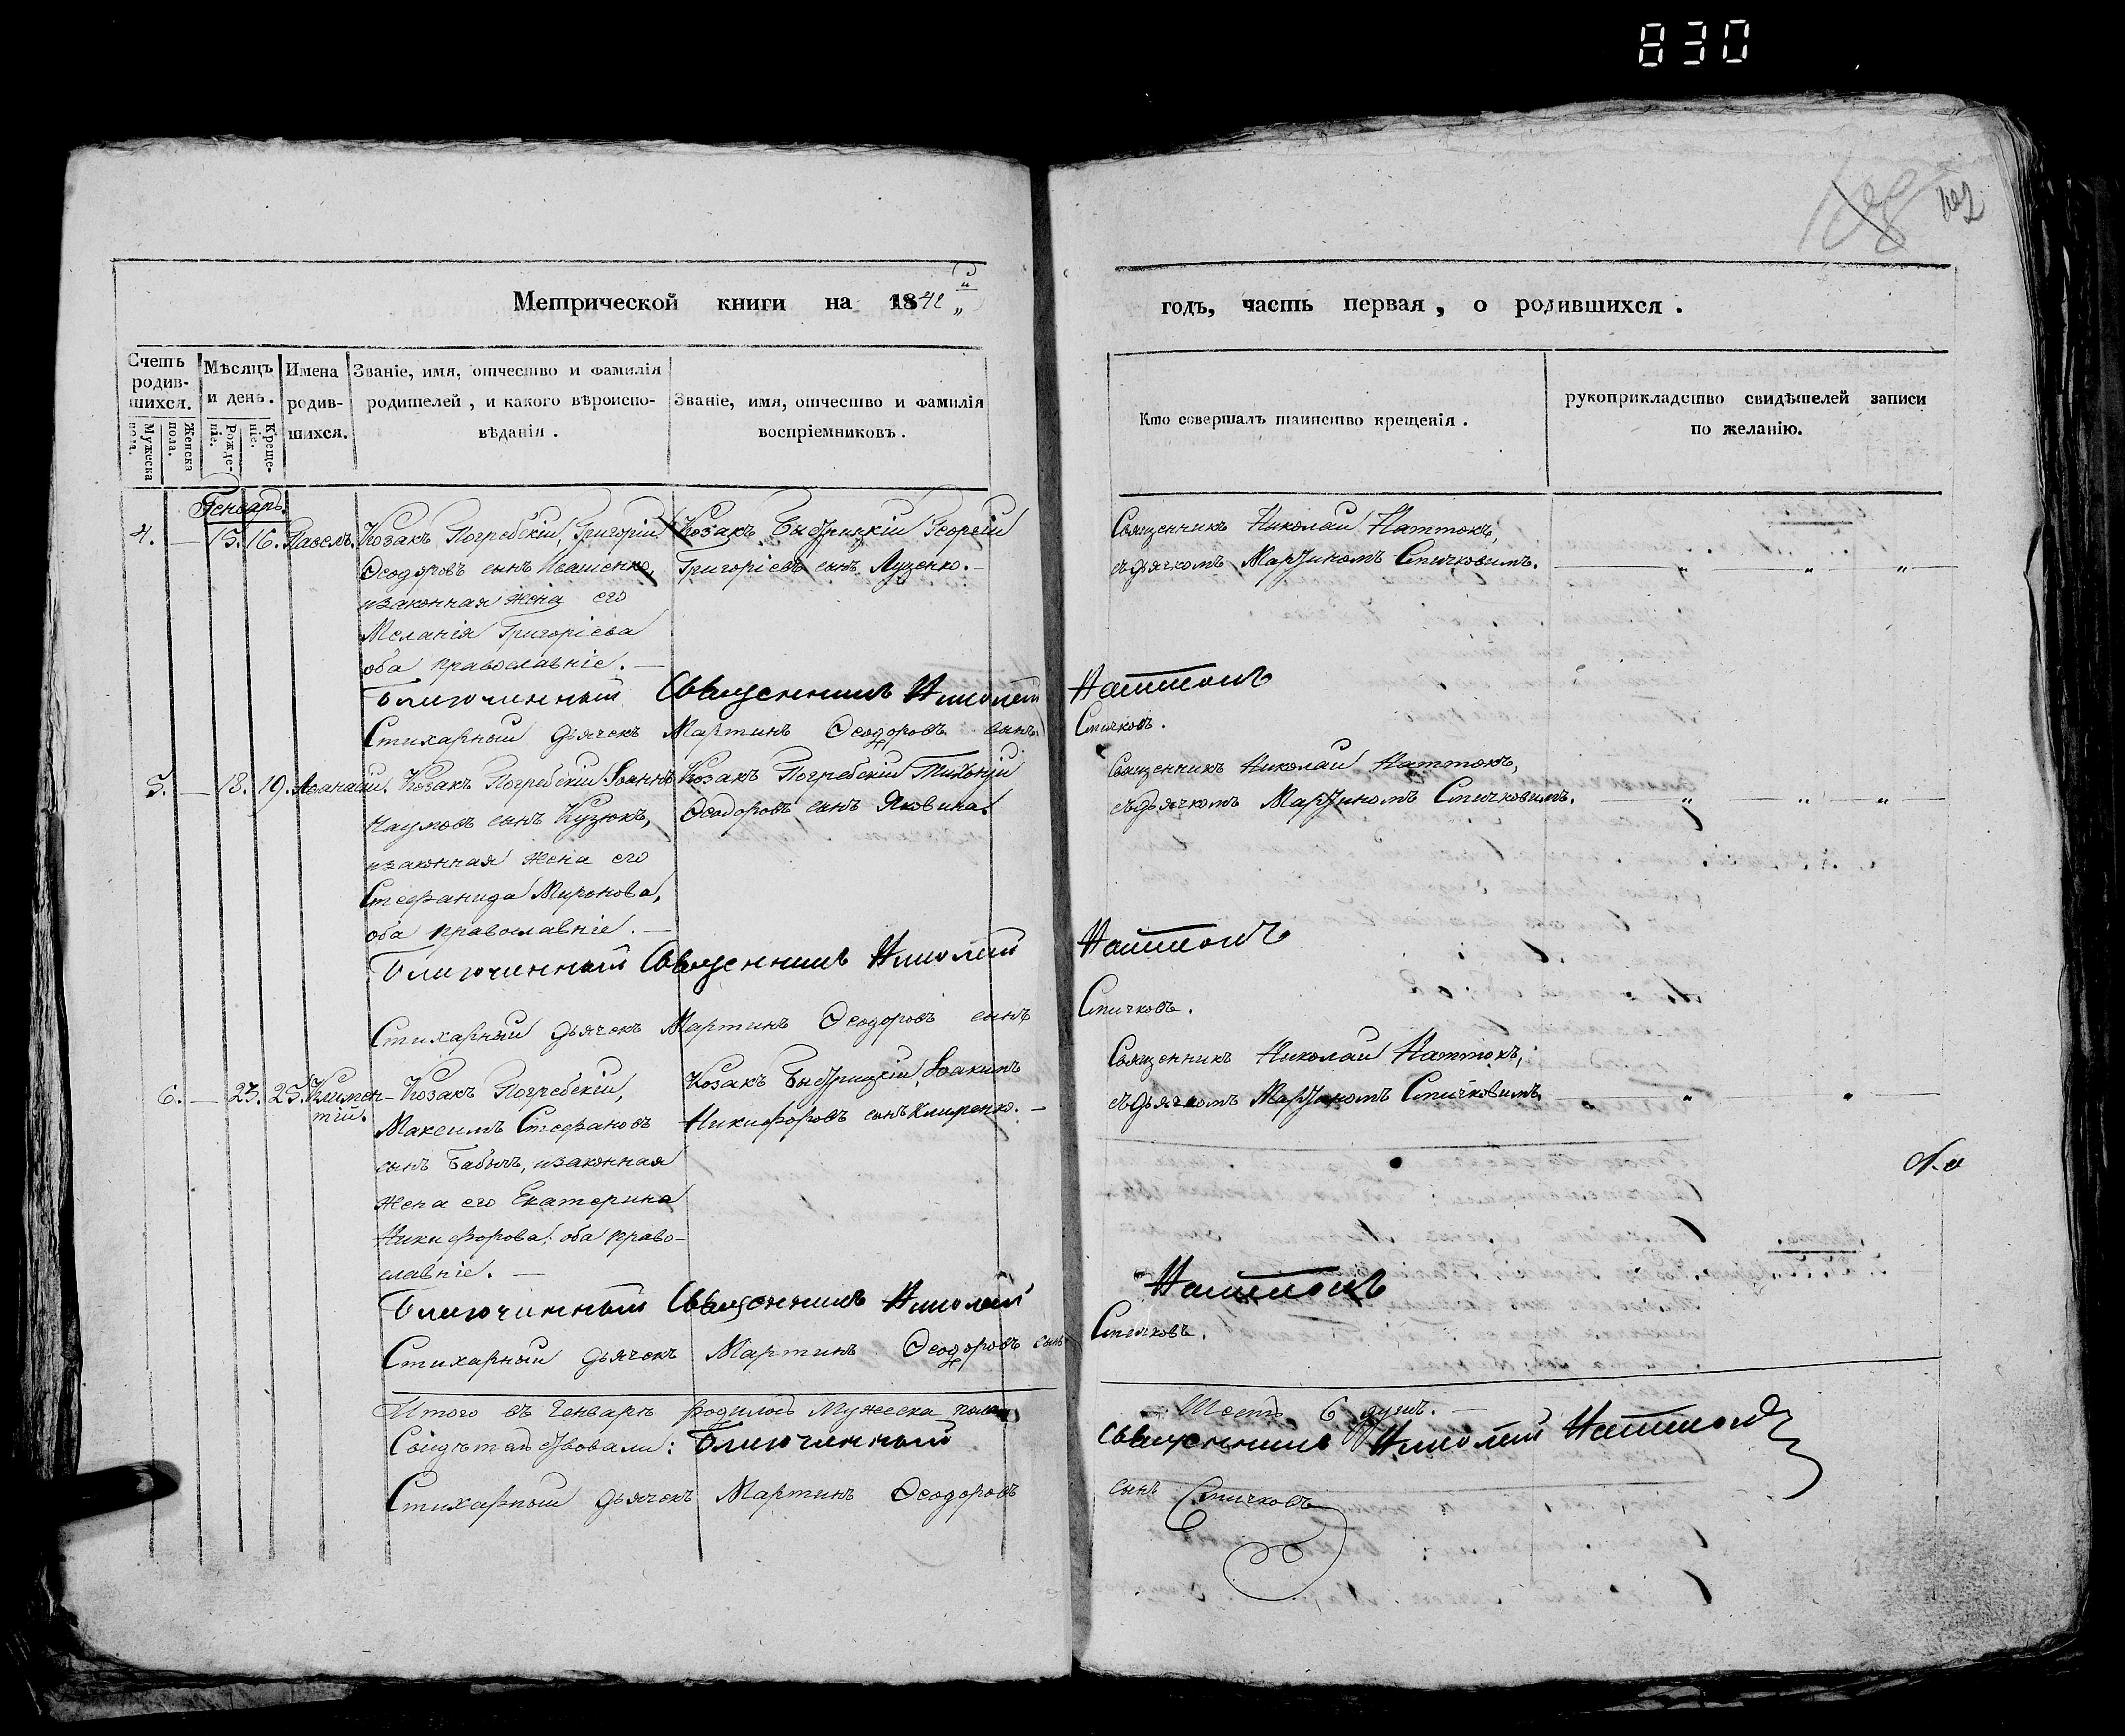 830
102
Метрической книги на 1842й
годъ, часть первая, о родившихся.
Счетъ родив-шихся.
Мужеска пола.
Женска пола.
Мѣсяцъ и день.
Рожде-ніе.
Креще-ніе.
Имена родив-шихся.
Званіе, имя, отчество и фамилія
родителей, и какого вѣроиспо-
вѣданія.
Званіе, имя, отчество и фамилія
воспріемниковъ.
Кто совершалъ таинство крещенія.
рукоприкладство свидѣтелей записи
по желанію.
Генварь.
4. — 15. 16. Павелъ. Козакъ Погребскій, Григорій
Ѳеодоровъ сынъ Ивашенко,
изаконная жена его
Меланія Григоріева
оба православніе. —
Козакъ Быстрицкій Георгій
Григоріевъ сынъ Луценко. —
Священникъ Николай Наттокъ,
съдьячкомъ Мартиномъ Спичковимъ.
Благочинный Священникъ Николай Наттокъ
Стихарный дьячекъ Мартинъ Ѳеодоровъ сынъ Спичковъ.
5. — 18. 19. Аѳанасій. Козакъ Погребскій Іоаннъ
Наумовъ сынъ Кузюкъ,
изаконная жена его
Стефанида Миронова,
оба православніе. —
Козакъ Погребскій
Ѳеодоровъ сынъ
Священникъ Николай Наттокъ,
съдьячкомъ Мартиномъ Спичковимъ.
Благочинный Священникъ Николай Наттокъ
Стихарный дьячекъ Мартинъ Ѳеодоровъ сынъ Спичковъ.
6. — 23. 25. Климен-
тій.
Козакъ Погребскій,
Максимъ Стефановъ
сынъ изаконная
жена его Екатерина
Никифорова: оба право-
славніе. —
Козакъ Быстрицкій, Іоакимъ
Никифоровъ сынъ —
Священникъ Николай Наттокъ,
съдьячкомъ Мартиномъ Спичковимъ
Благочинный Священникъ Николай Наттокъ
Стихарный дьячекъ Мартинъ Ѳеодоровъ сынъ Спичковъ.
Итого въ Генварѣ родилось Мужеска пола Шесть 6 душъ. —
Свидѣтельствовали: Благочинный Священникъ Николай Наттокъ
Стихарный дьячекъ Мартинъ Ѳеодоровъ сынъ Спичковъ